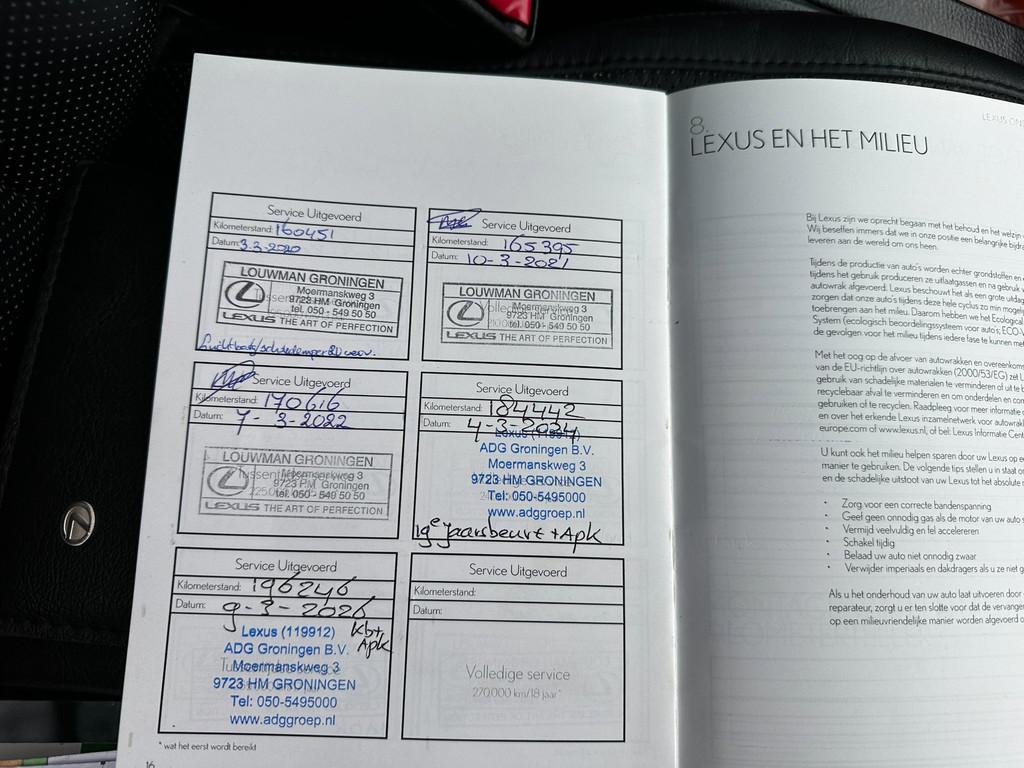 Service Uitgevoerd
Kilometerstand: 160451
Datum: 3-3-2020
LOUWMAN GRONINGEN
Moermanskweg 3
9723 HM Groningen
tel. 050 - 549 50 50
LEXUS THE ART OF PERFECTION
Service Uitgevoerd
Kilometerstand: 165395
Datum: 10-3-2021
LOUWMAN GRONINGEN
Moermanskweg 3
9723 HM Groningen
tel. 050 - 549 50 50
LEXUS THE ART OF PERFECTION
Service Uitgevoerd
Kilometerstand: 170616
Datum: 7-3-2022
LOUWMAN GRONINGEN
Moermanskweg 3
9723 HM Groningen
tel. 050 - 549 50 50
LEXUS THE ART OF PERFECTION
Service Uitgevoerd
Kilometerstand: 184442
Datum: 4-3-2024
Lexus (119912)
ADG Groningen B.V.
Moermanskweg 3
9723 HM GRONINGEN
Tel: 050-5495000
www.adggroep.nl
19e jaarsbeurt + Apk
Service Uitgevoerd
Kilometerstand: 196246
Datum: 9-3-2026
Kb+
Apk
Lexus (119912)
ADG Groningen B.V.
Moermanskweg 3
9723 HM GRONINGEN
Tel: 050-5495000
www.adggroep.nl
Service Uitgevoerd
Kilometerstand:
Datum:
Volledige service
270.000 km/18 jaar*
* wat het eerst wordt bereikt
16
LEXUS
8.
LEXUS EN HET MILIEU
Bij Lexus zijn we oprecht begaan met het behoud en het welzijn
Wij beseffen immers dat we in onze positie een belangrijke
leveren aan de wereld om ons heen.
Tijdens de productie van auto's worden echter grondstoffen en
tijdens het gebruik produceren ze uitlaatgassen en na gebruik
autowrak afgevoerd. Lexus beschouwt het als een grote
zorgen dat onze auto's tijdens deze hele cyclus zo min
toebrengen aan het milieu. Daarom hebben we het Ecological
System (ecologisch beoordelingssysteem voor auto's;
de gevolgen voor het milieu tijdens iedere fase te kunnen
Met het oog op de afvoer van autowrakken en
van de EU-richtlijn over autowrakken (2000/53/EG) zet
gebruik van schadelijke materialen te verminderen of uit te
recyclebaar afval te verminderen en om onderdelen en
gebruiken of te recyclen. Raadpleeg voor meer informatie
en over het erkende Lexus inzamelnetwerk voor
europe.com of www.lexus.nl, of bel: Lexus Informatie
U kunt ook het milieu helpen sparen door uw Lexus op
manier te gebruiken. De volgende tips stellen u in staat
en de schadelijke uitstoot van uw Lexus tot het absolute
• Zorg voor een correcte bandenspanning
• Geef geen onnodig gas als de motor van uw auto
• Vermijd veelvuldig en fel accelereren
• Schakel tijdig
• Belaad uw auto niet onnodig zwaar
• Verwijder imperiaals en dakdragers als u ze niet
Als u het onderhoud van uw auto laat uitvoeren door
reparateur, zorgt u er ten slotte voor dat de
op een milieuvriendelijke manier worden afgevoerd